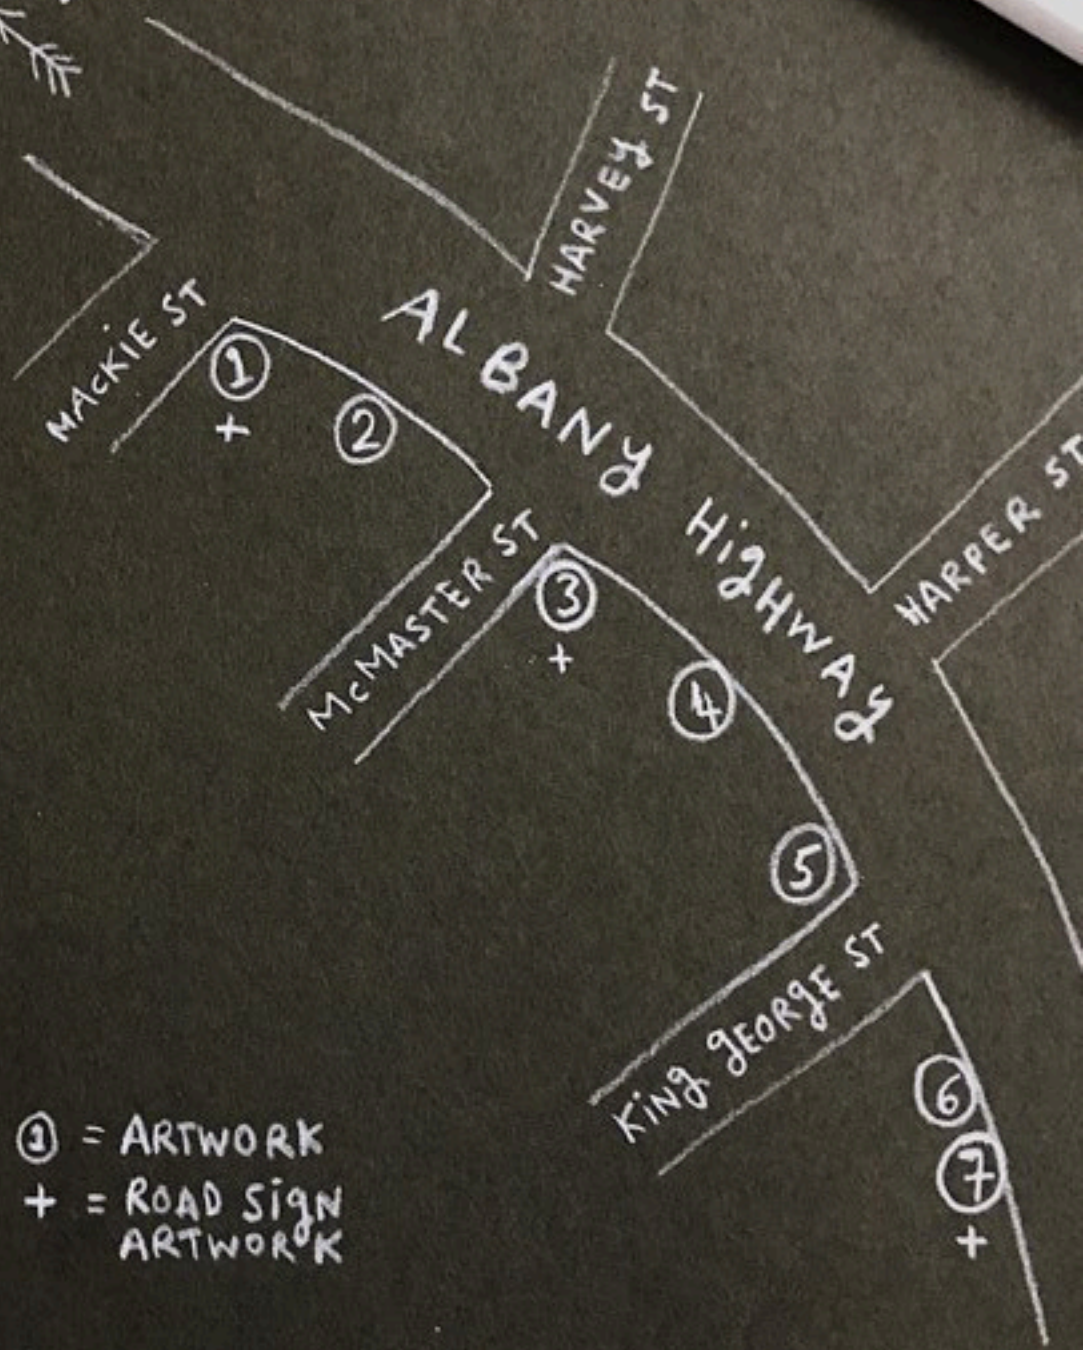 HARVEY ST
MAcKiE ST
ALBANY HigHWAy
1
2
McMASTER ST
HARPER ST
3
+
+
4
5
KiNg gEORgE ST
6
7
+
1 = ARTWORK
+ = ROAD SigN
ARTWORK